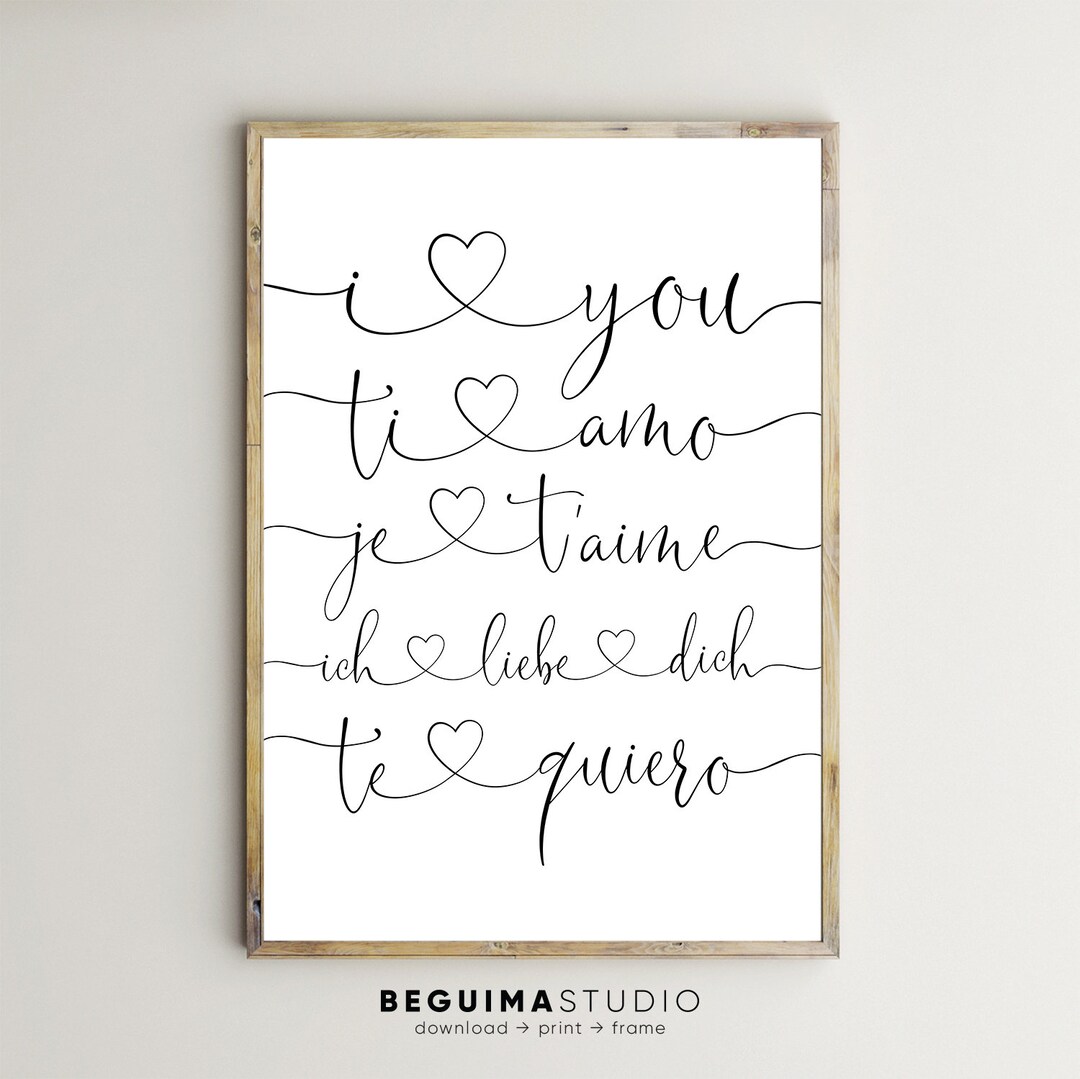 i you
ti amo
je t'aime
ich liebe dich
te quiero
BEGUIMASTUDIO
download → print → frame